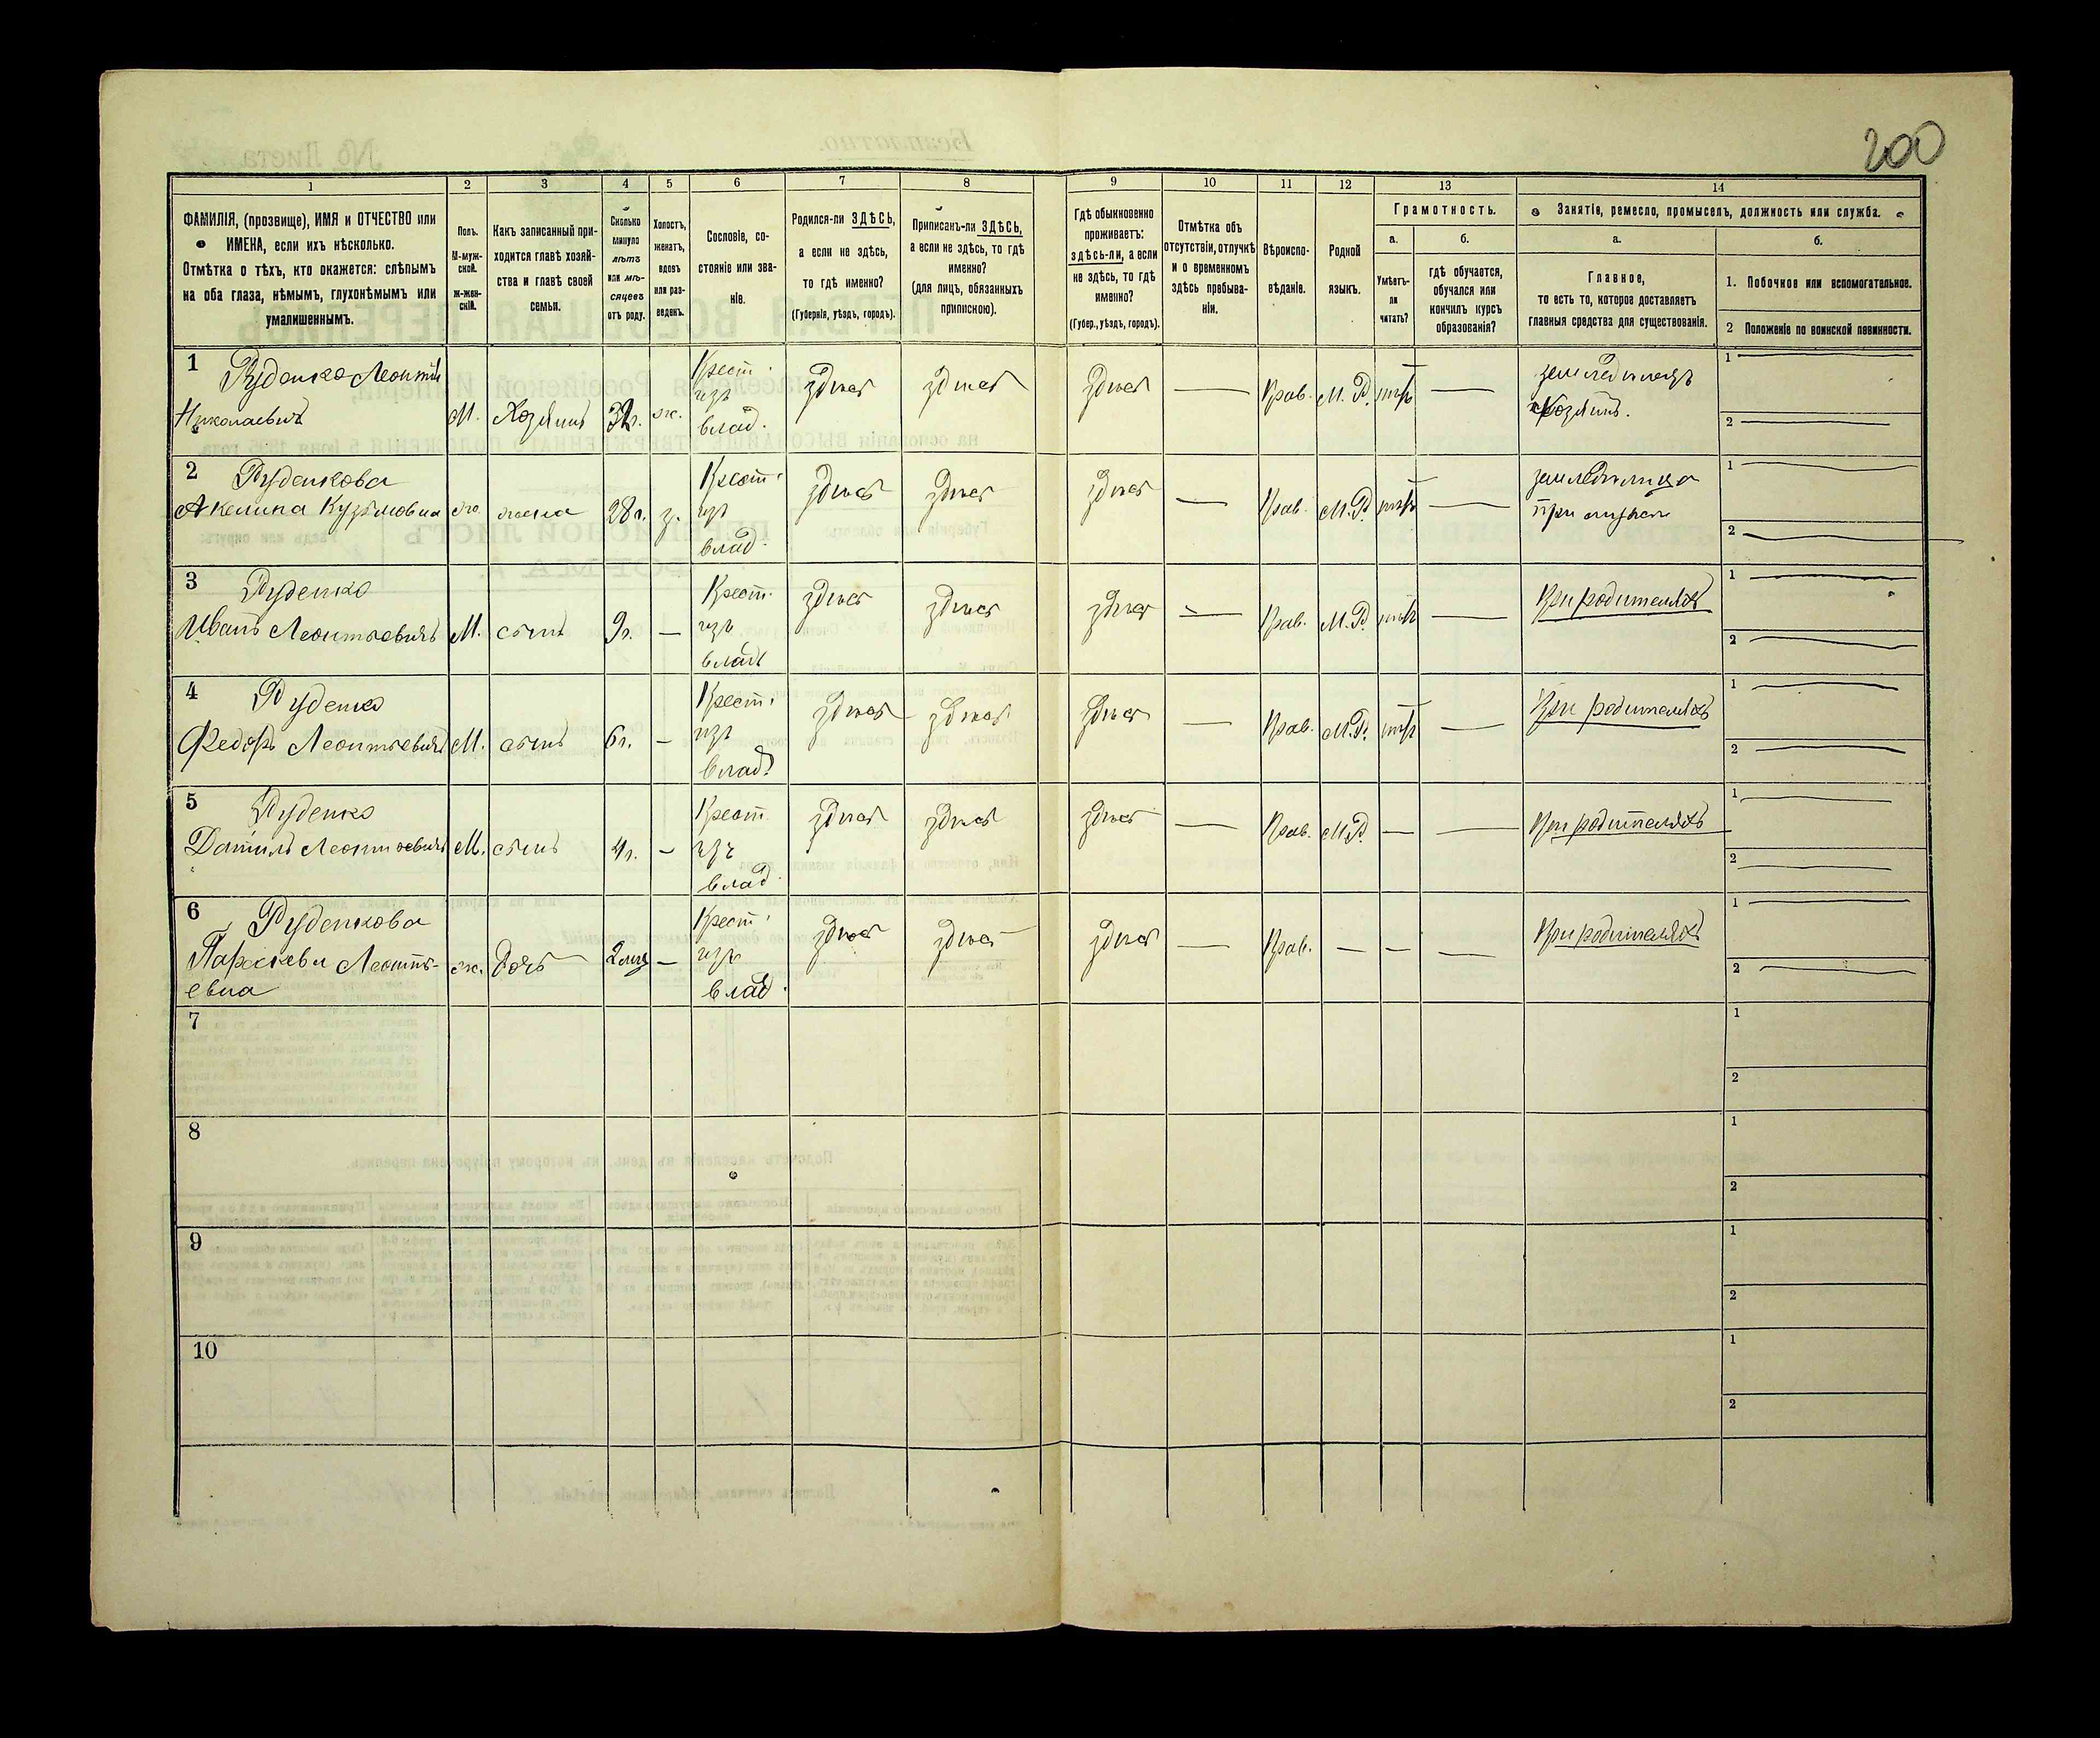 200
1 2 3 4 5 6 7 8 9 10 11 12 13 14
ФАМИЛІЯ, (прозвище), ИМЯ и ОТЧЕСТВО или
ИМЕНА, если ихъ нѣсколько.
Отмѣтка о тѣхъ, кто окажется: слѣпымъ
на оба глаза, нѣмымъ, глухонѣмымъ или
умалишеннымъ.
Полъ.
М-муж-
ской.
ж-жен-
скій.
Какъ записанный при-
ходится главѣ хозяй-
ства и главѣ своей
семьи.
Сколько
минуло
лѣтъ
или мѣ-
сяцевъ
отъ роду.
Холостъ,
женатъ,
вдовъ
или раз-
веденъ.
Сословіе, со-
стояніе или зва-
ніе.
Родился-ли ЗДѢСЬ,
а если не здѣсь,
то гдѣ именно?
(Губернія, уѣздъ, городъ).
Приписанъ-ли ЗДѢСЬ,
а если не здѣсь, то гдѣ
именно?
(для лицъ, обязанныхъ
припискою).
Гдѣ обыкновенно
проживаетъ:
здѣсь-ли, а если
не здѣсь, то гдѣ
именно?
(Губер., уѣздъ, городъ).
Отмѣтка объ
отсутствіи, отлучкѣ
и о временномъ
здѣсь пребыва-
ніи.
Вѣроиспо-
вѣданіе.
Родной
языкъ.
Грамотность.
а.
Умѣетъ-
ли
читать?
б.
гдѣ обучается,
обучался или
кончилъ курсъ
образованія?
Занятіе, ремесло, промыселъ, должность или служба.
а.
Главное,
то есть то, которое доставляетъ
главныя средства для существованія.
б.
1. Побочное или вспомогательное.
2 Положеніе по воинской повинности.
1 Руденко Леонтій
Николаевичъ
М. Хозяинъ 32г. ж.
Крест.
изъ
влад.
здѣсь здѣсь здѣсь — Прав. М. Р. нѣтъ —
земледѣлецъ
хозяинъ.
1
2
2 Руденкова
Акелина Кузьмовна
ж. жена 28г. з.
Крест.
изъ
влад.
здѣсь здѣсь здѣсь — Прав. М. Р. нѣтъ —
земледѣлица
при мужѣ
1
2
3 Руденко
Иванъ Леонтьевичъ
М. сынъ 9г. —
Крест.
изъ
влад.
здѣсь здѣсь здѣсь — Прав. М. Р. нѣтъ —
При родителяхъ
1
2
4 Руденко
Федоръ Леонтьевичъ
М. сынъ 6г. —
Крест.
изъ
влад.
здѣсь здѣсь здѣсь — Прав. М. Р. нѣтъ —
При родителяхъ
1
2
5 Руденко
Даніилъ Леонтьевичъ
М. сынъ 4г. —
Крест.
изъ
влад.
здѣсь здѣсь здѣсь — Прав. М. Р. — —
При родителяхъ
1
2
6 Руденкова
Парскева Леонть-
евна
ж. дочь 2 мц —
Крест.
изъ
влад.
здѣсь здѣсь здѣсь — Прав. — — —
При родителяхъ
1
2
7
1
2
8
1
2
9
1
2
10
1
2